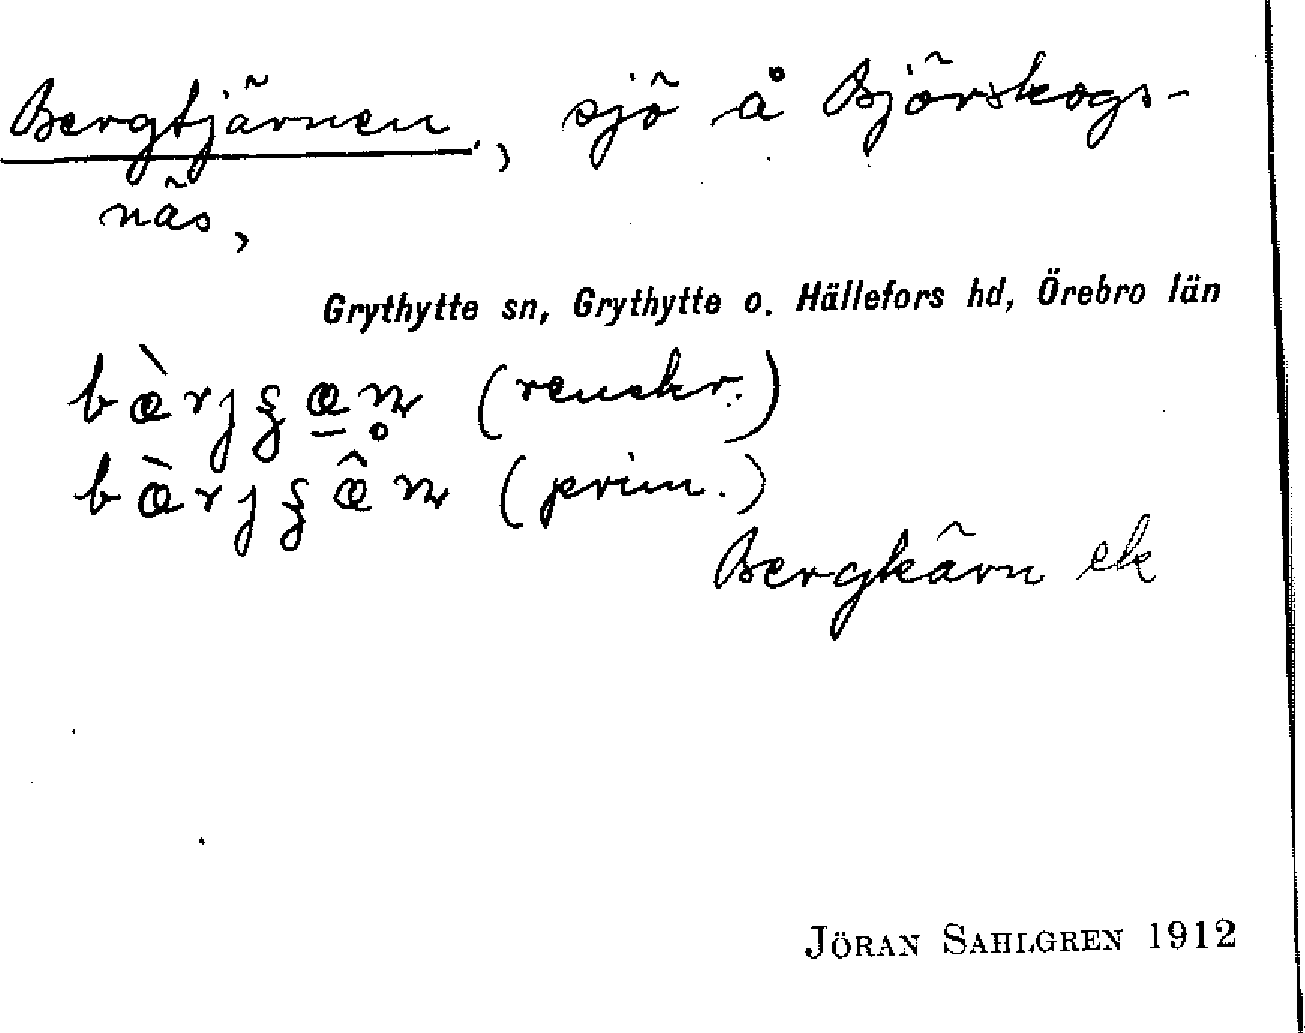 Bergtjärnen, sjö å Björskogs-
näs,
Grythytte sn, Grythytte o. Hällefors hd, Örebro län
(renskr.)
(prim.)
Bergkärn ek
JÖRAN SAHLGREN 1912